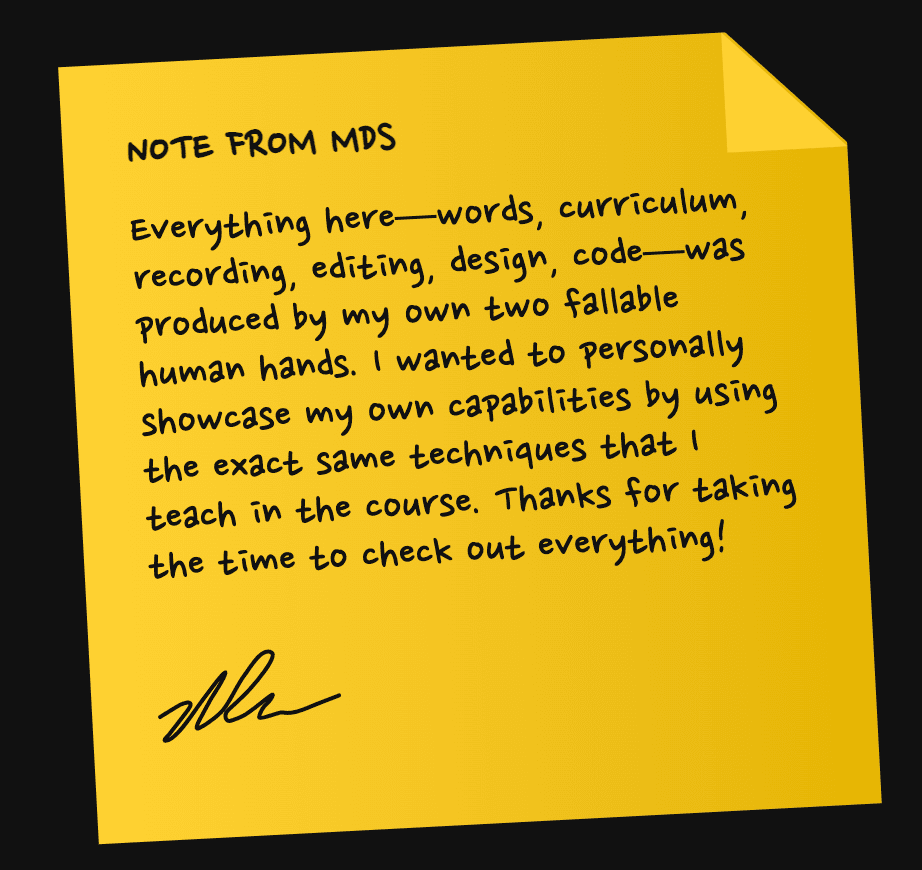 NOTE FROM MDS
Everything here—words, curriculum,
recording, editing, design, code—was
produced by my own two fallable
human hands. I wanted to personally
showcase my own capabilities by using
the exact same techniques that I
teach in the course. Thanks for taking
the time to check out everything!